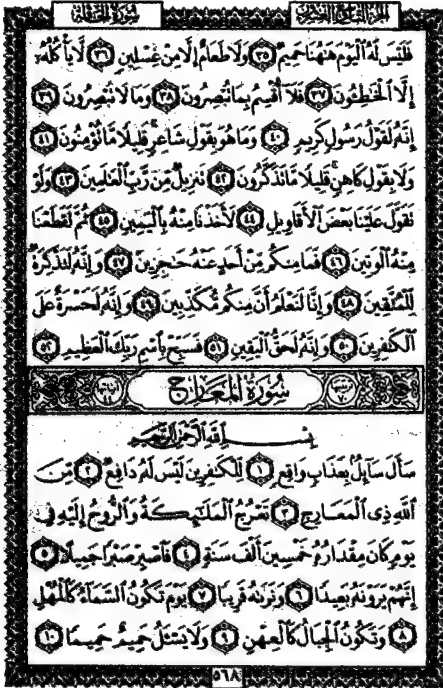 سورة الحاقة الجزء التاسع والعشرون
فَلَيْسَ لَهُ ٱلْيَوْمَ هَٰهُنَا حَمِيمٌ ٣٥ وَلَا طَعَامٌ إِلَّا مِنْ غِسْلِينٍ ٣٦ لَّا يَأْكُلُهُۥٓ
إِلَّا ٱلْخَٰطِـُٔونَ ٣٧ فَلَآ أُقْسِمُ بِمَا تُبْصِرُونَ ٣٨ وَمَا لَا تُبْصِرُونَ ٣٩
إِنَّهُۥ لَقَوْلُ رَسُولٍ كَرِيمٍ ٤٠ وَمَا هُوَ بِقَوْلِ شَاعِرٍ قَلِيلًا مَّا تُؤْمِنُونَ ٤١
وَلَا بِقَوْلِ كَاهِنٍ قَلِيلًا مَّا تَذَكَّرُونَ ٤٢ تَنزِيلٌ مِّن رَّبِّ ٱلْعَٰلَمِينَ ٤٣ وَلَوْ
تَقَوَّلَ عَلَيْنَا بَعْضَ ٱلْأَقَاوِيلِ ٤٤ لَأَخَذْنَا مِنْهُ بِٱلْيَمِينِ ٤٥ ثُمَّ لَقَطَعْنَا
مِنْهُ ٱلْوَتِينَ ٤٦ فَمَا مِنكُم مِّنْ أَحَدٍ عَنْهُ حَٰجِزِينَ ٤٧ وَإِنَّهُۥ لَتَذْكِرَةٌ
لِّلْمُتَّقِينَ ٤٨ وَإِنَّا لَنَعْلَمُ أَنَّ مِنكُم مُّكَذِّبِينَ ٤٩ وَإِنَّهُۥ لَحَسْرَةٌ عَلَى
ٱلْكَٰفِرِينَ ٥٠ وَإِنَّهُۥ لَحَقُّ ٱلْيَقِينِ ٥١ فَسَبِّحْ بِٱسْمِ رَبِّكَ ٱلْعَظِيمِ ٥٢
سُورَةُ المَعَارِجِ
بِسْمِ ٱللَّهِ ٱلرَّحْمَٰنِ ٱلرَّحِيمِ
سَأَلَ سَآئِلٌۢ بِعَذَابٍ وَاقِعٍ ١ لِّلْكَٰفِرِينَ لَيْسَ لَهُۥ دَافِعٌ ٢ مِّنَ
ٱللَّهِ ذِى ٱلْمَعَارِجِ ٣ تَعْرُجُ ٱلْمَلَٰٓئِكَةُ وَٱلرُّوحُ إِلَيْهِ فِى
يَوْمٍ كَانَ مِقْدَارُهُۥ خَمْسِينَ أَلْفَ سَنَةٍ ٤ فَٱصْبِرْ صَبْرًا جَمِيلًا ٥
إِنَّهُمْ يَرَوْنَهُۥ بَعِيدًا ٦ وَنَرَىٰهُ قَرِيبًا ٧ يَوْمَ تَكُونُ ٱلسَّمَآءُ كَٱلْمُهْلِ
٨ وَتَكُونُ ٱلْجِبَالُ كَٱلْعِهْنِ ٩ وَلَا يَسْـَٔلُ حَمِيمٌ حَمِيمًا ١٠
٥٦٨